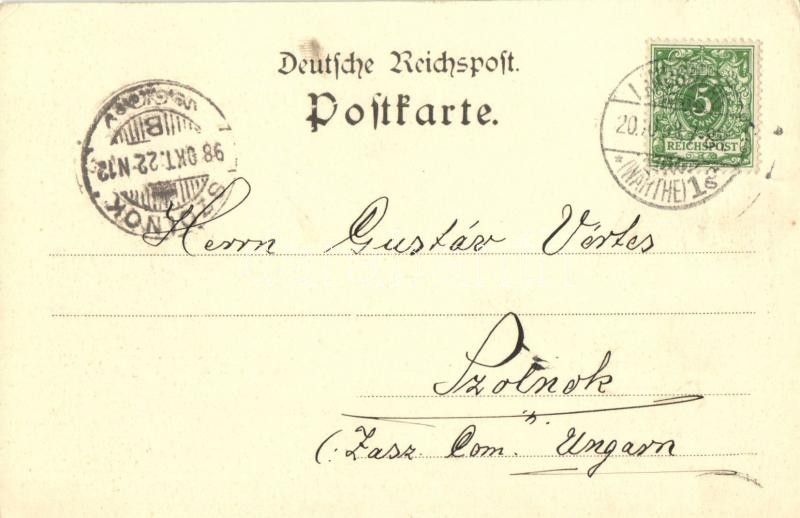 Deutsche Reichspost.
Postkarte.
5
REICHSPOST
20.
* (WARTHE) 1
98 OKT. 22 N12
B
Herrn Gustáv Vértes
Szolnok
(: Jasz. Com. Ungarn